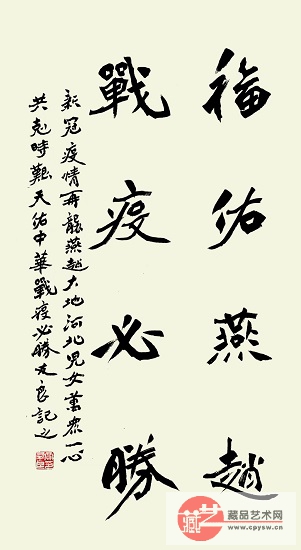 福佑燕趙
戰疫必勝
新冠疫情再襲燕趙大地河北兒女萬眾一心
共克時艱天佑中華戰疫必勝良記之
藏艺
藏品艺术网
www.cpysw.cn